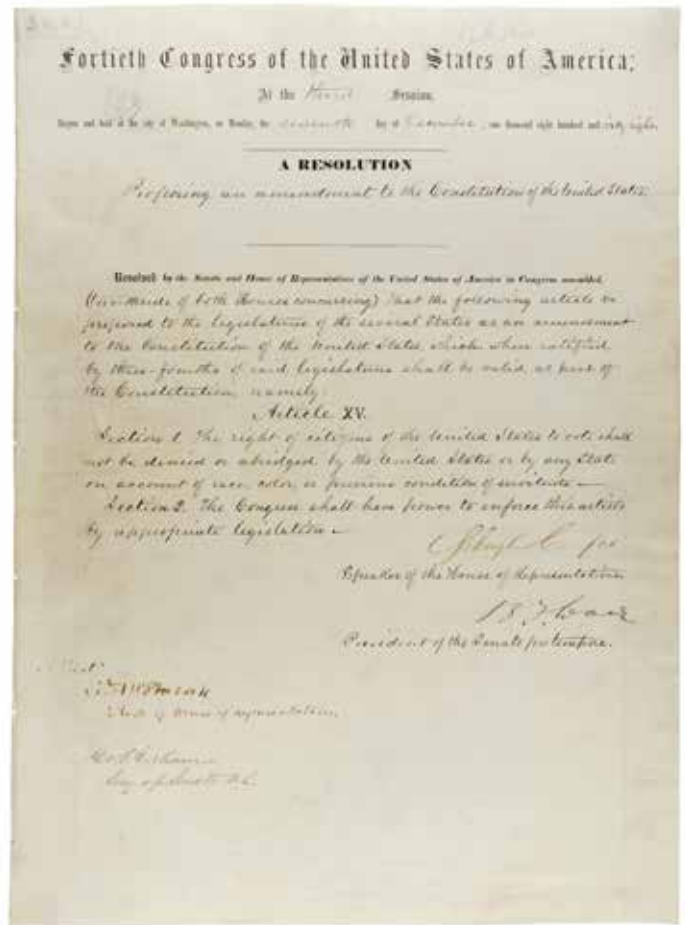 Fortieth Congress of the United States of America;
At the Third Session,
Begun and held at the city of Washington, on Monday, the seventh day of December, one thousand eight hundred and sixty-eight.
A RESOLUTION
Proposing an amendment to the Constitution of the United States.
Resolved by the Senate and House of Representatives of the United States of America in Congress assembled,
(two-thirds of both Houses concurring) That the following article be
proposed to the legislatures of the several States as an amendment
to the Constitution of the United States which, when ratified
by three-fourths of said legislatures shall be valid as part of
the Constitution, namely:
Article XV.
Section 1. The right of citizens of the United States to vote shall
not be denied or abridged by the United States or by any State
on account of race, color, or previous condition of servitude—
Section 2. The Congress shall have power to enforce this article
by appropriate legislation—
Speaker of the House of Representatives.
B. F. Wade
President of the Senate pro tempore.
Attest:
Clerk of House of representatives.